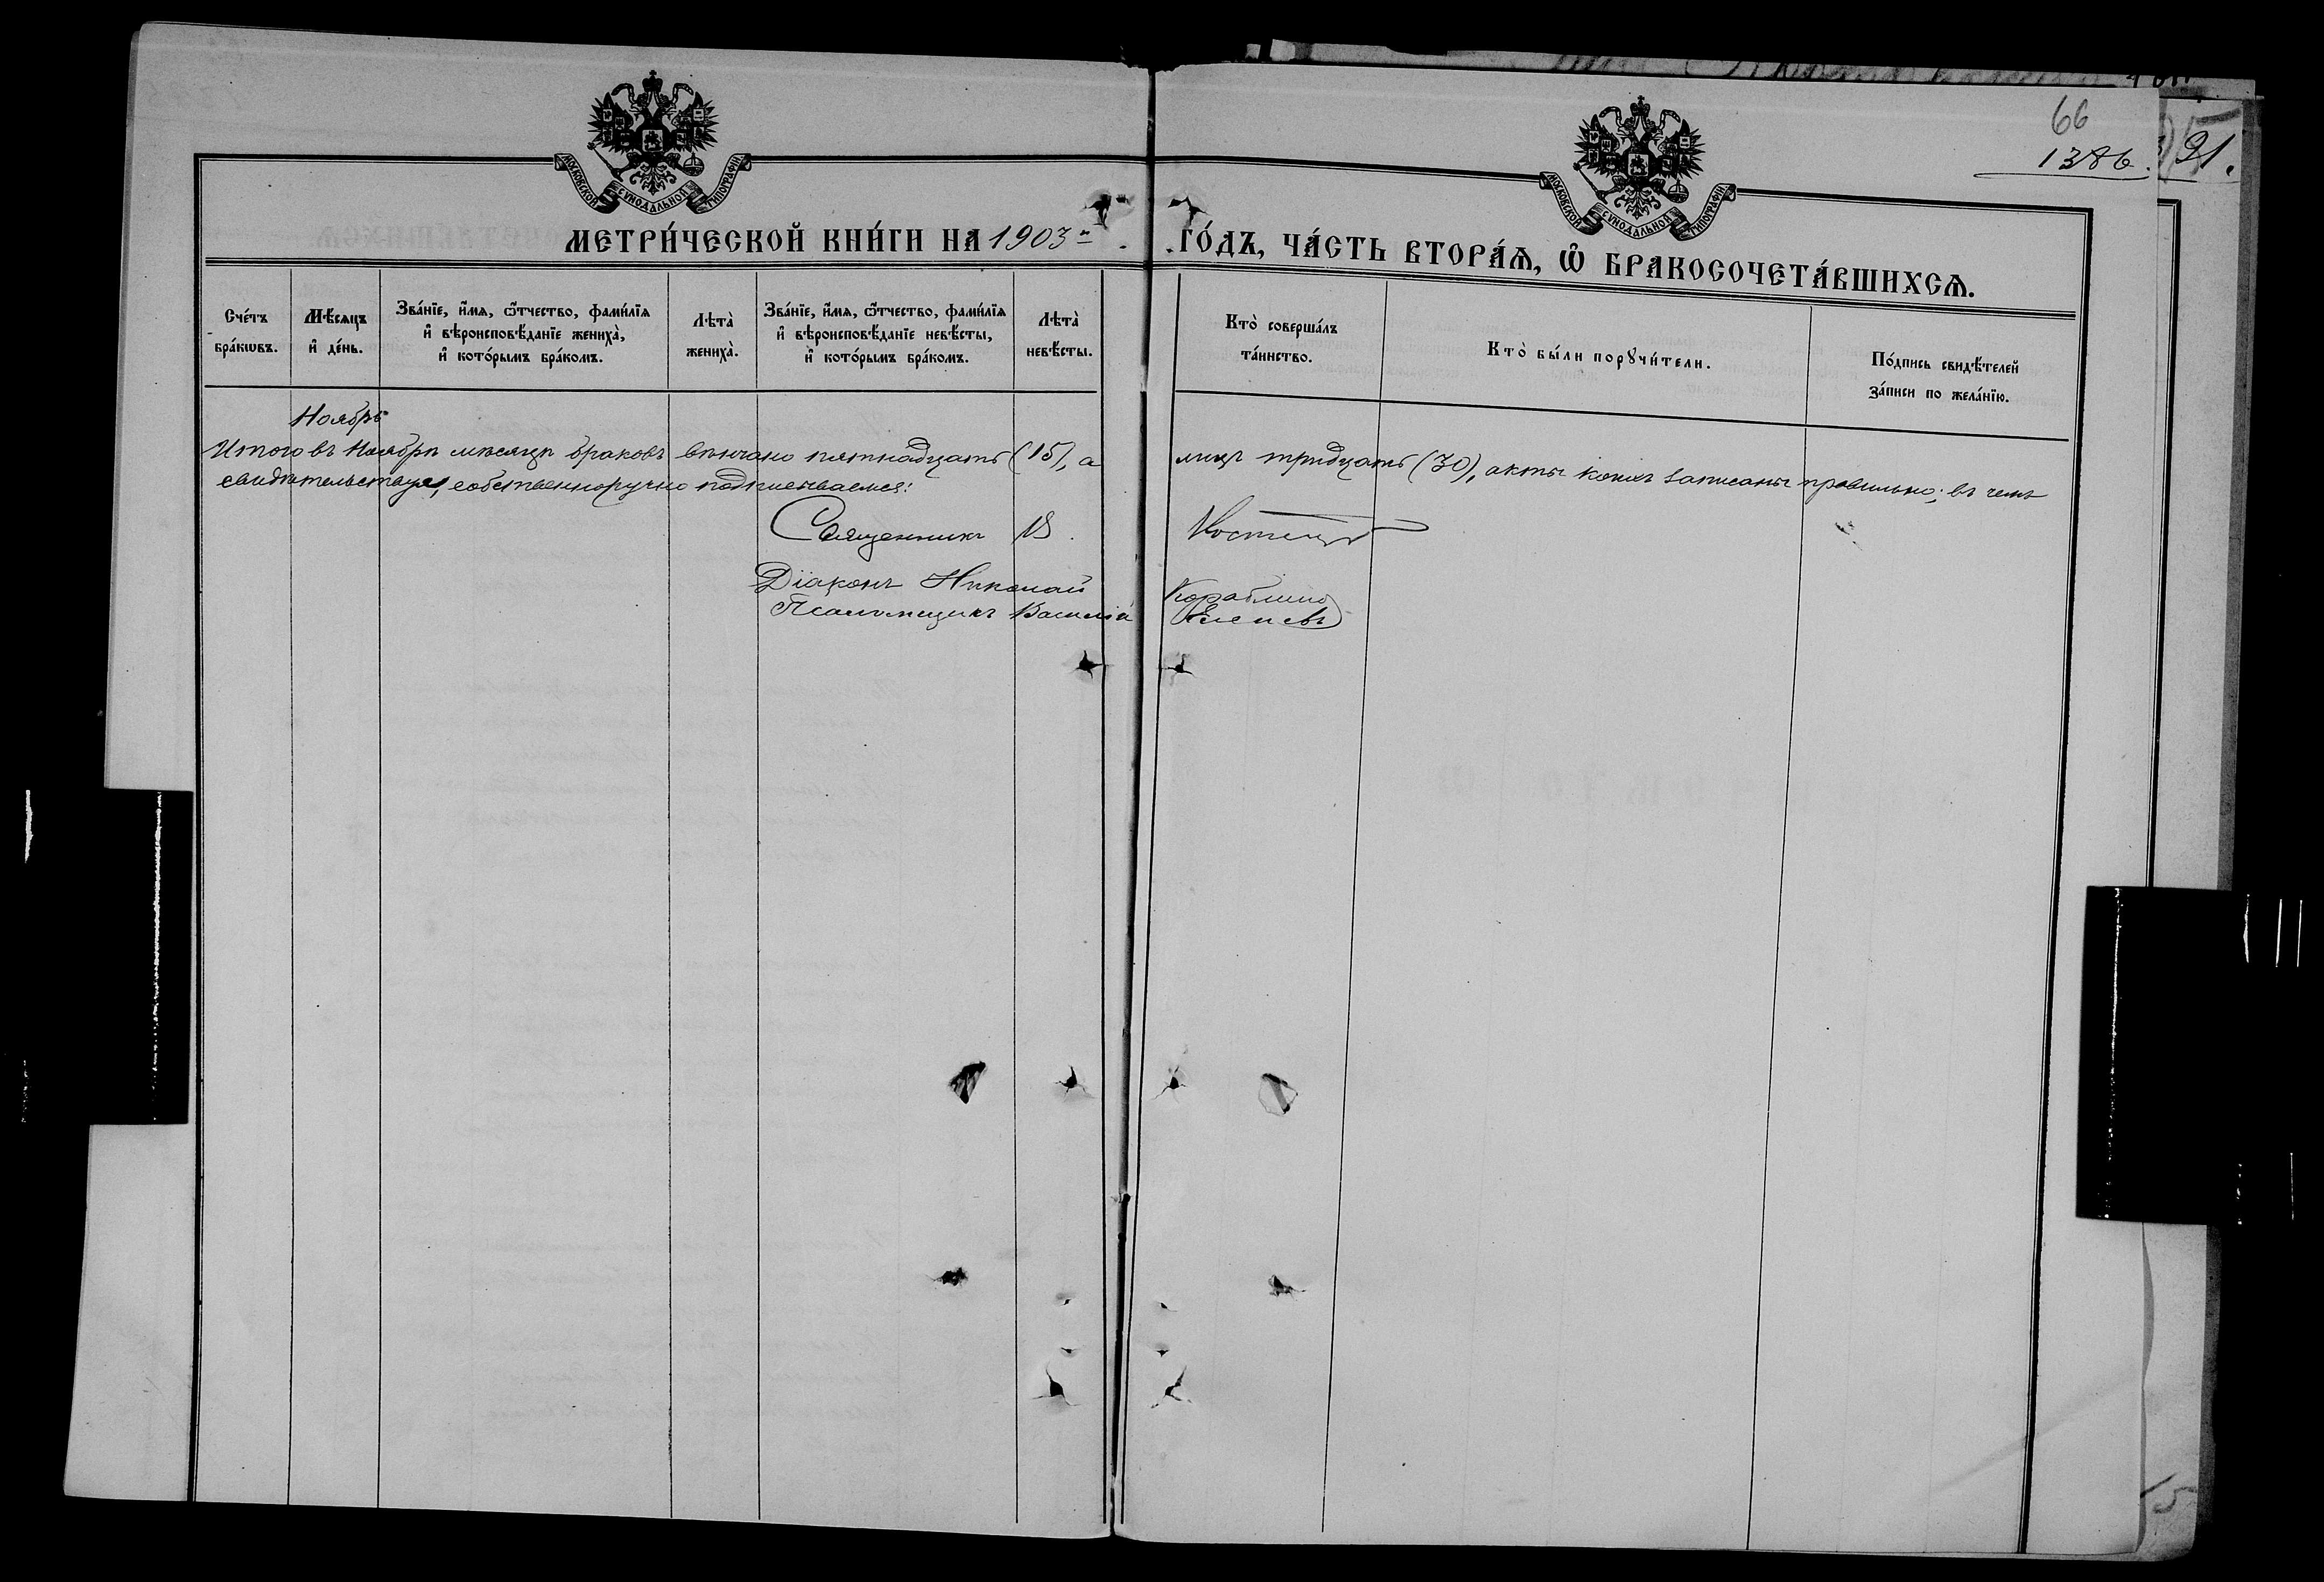 66
1386.
91.
МОСКОВСКОЙ СѴНОДАЛЬНОЙ ТИПОГРАФІИ
МОСКОВСКОЙ СѴНОДАЛЬНОЙ ТИПОГРАФІИ
МЕТРИ́ЧЕСКОЙ КНИ́ГИ НА 1903й ГО́ДЪ, ЧА́СТЬ ВТОРА́Ѧ, Ѡ҆ БРАКОСОЧЕТА́ВШИХСѦ.
Сче́тъ бра́кѡвъ.
Мѣ́сяцъ и҆ де́нь.
Зва́нїе, и҆́мя, ѻ҆́тчество, фами́лїя и҆ вѣроисповѣ́данїе жениха̀, и҆ кото́рымъ бра́комъ.
Лѣта̀ жениха̀.
Зва́нїе, и҆́мя, ѻ҆́тчество, фами́лїя и҆ вѣроисповѣ́данїе невѣ́сты, и҆ кото́рымъ бра́комъ.
Лѣта̀ невѣ́сты.
Кто̀ соверша́лъ та́инство.
Кто̀ бы́ли порꙋчи́тели.
По́дпись свидѣ́телей за́писи по жела́нїю.
Ноябрь
Итого въ Ноябрѣ мѣсяцѣ браковъ вѣнчано пятнадцать (15), а лицъ тридцать (30), акты коихъ записаны правильно; въ чемъ
свидѣтельствуя, собственноручно подписываемся:
Священникъ В.
Діаконъ Николай Кораблино
Псаломщикъ Василій